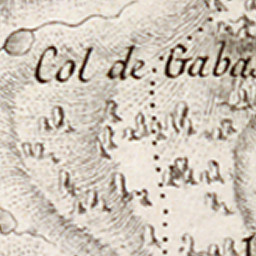 Col de Gabas